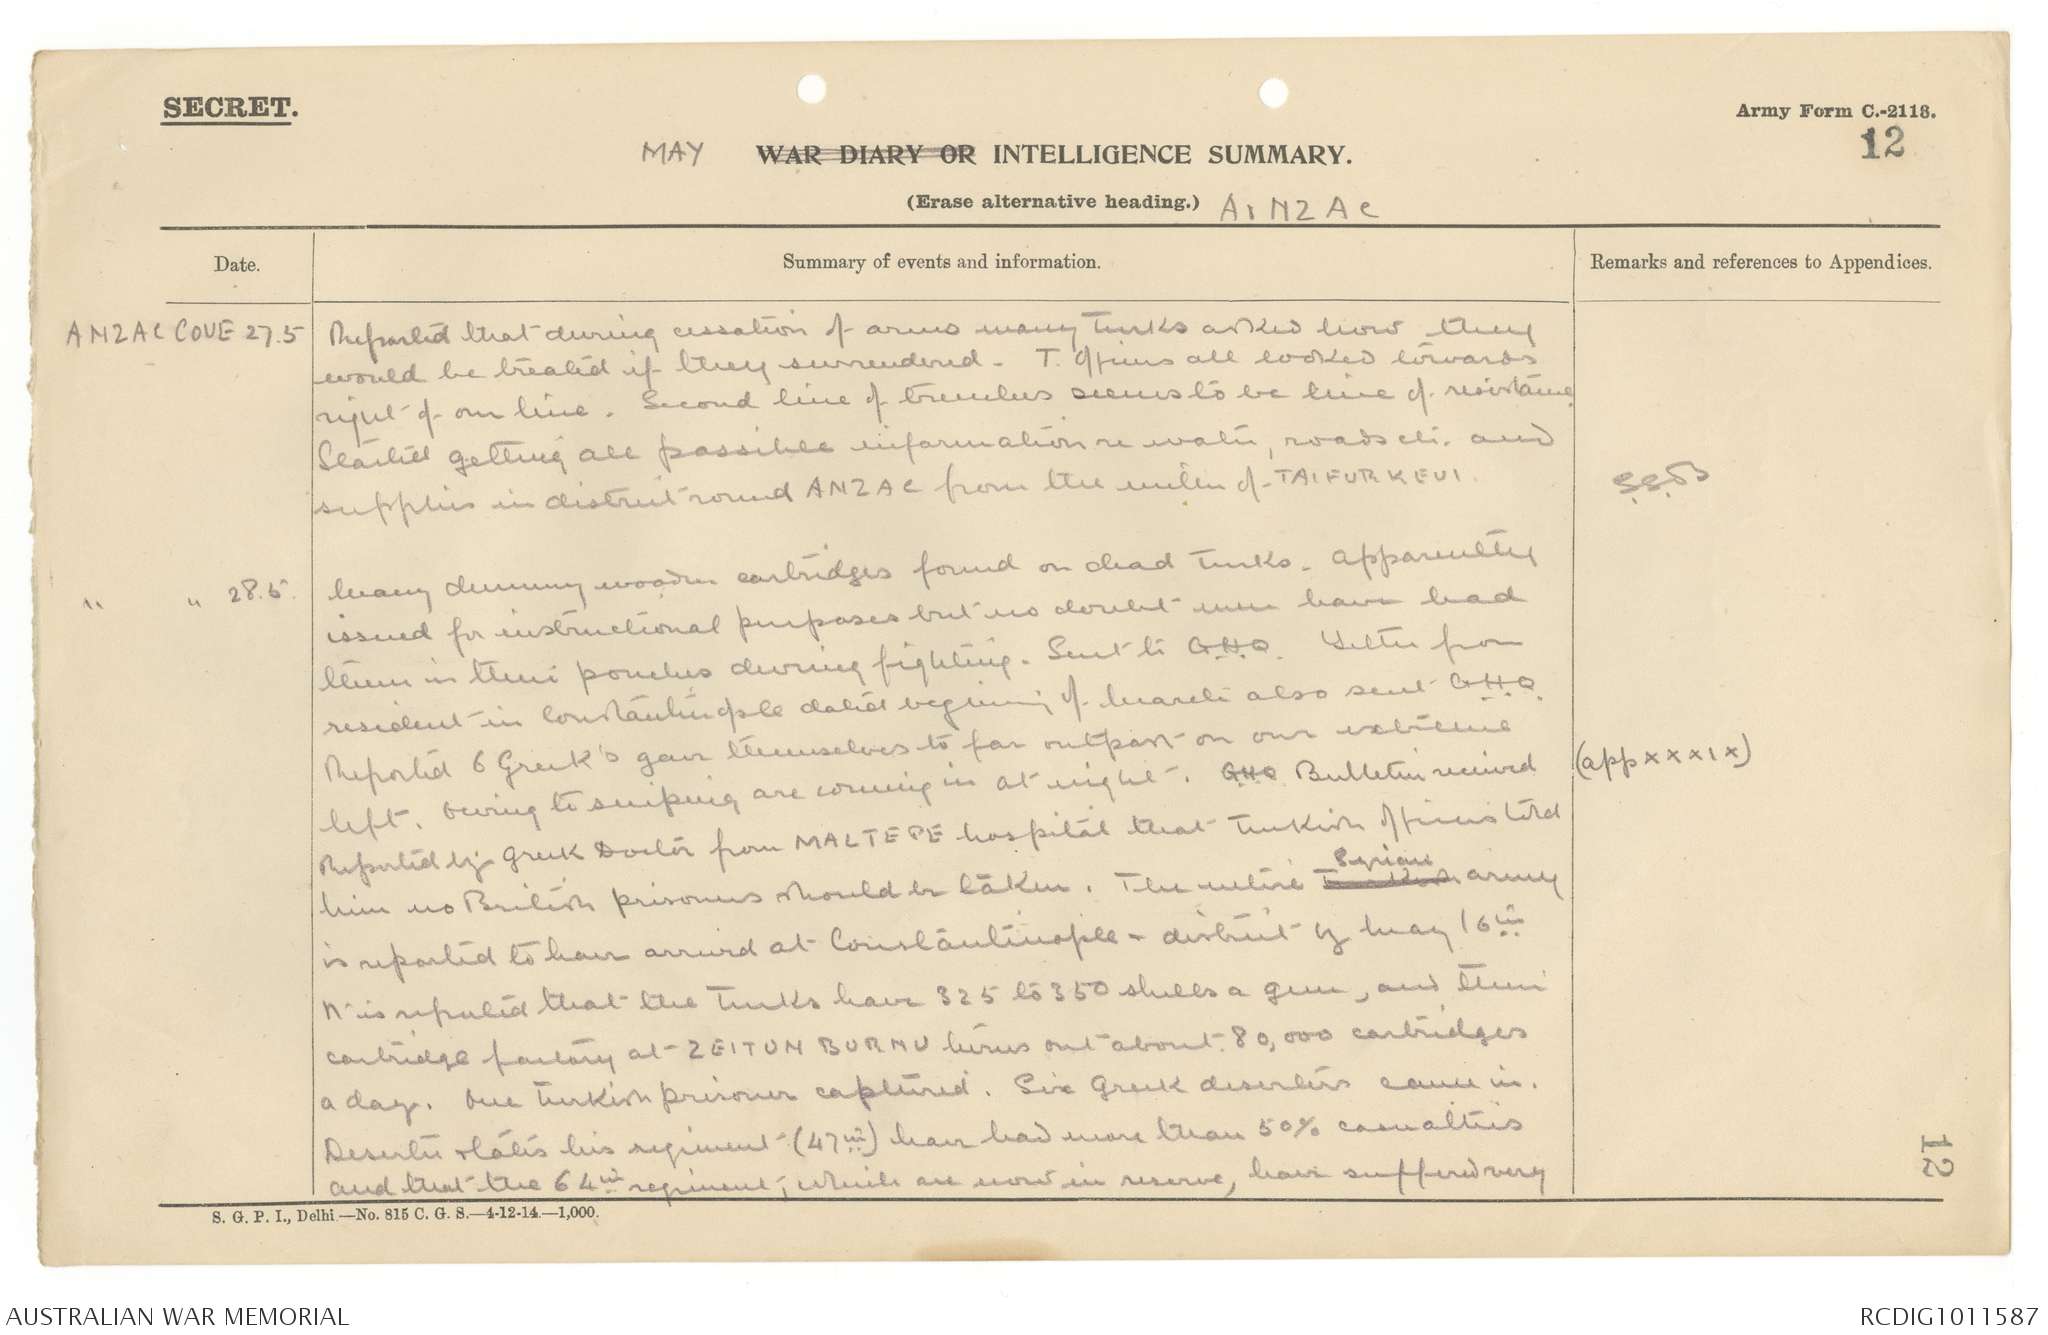 SECRET.
Army Form C.-2118.
12
MAY WAR DIARY OR INTELLIGENCE SUMMARY.
(Erase alternative heading.) A.N.Z.A.C
Date.
Summary of events and information.
Remarks and references to Appendices.
ANZAC COVE 27.5
Reported that during cessation of arms many Turks asked how they
would be treated if they surrendered. T. officers all looked towards
right of our line. Second line of trenches seems to be line of resistance
Started getting all possible information re water, roads etc. and
supplies in district round ANZAC from the miller of TAIFURKEUI.
" " 28.5.
Many dummy wooden cartridges found on dead Turks. Apparently
issued for instructional purposes but no doubt men have had
them in their pouches during fighting. Sent to G.H.Q. Letter from
resident in Constantinople dated beginning of March also sent G.H.Q.
Reported 6 Greek's gave themselves to far outpost on our extreme
left. Owing to sniping are coming in at night. G.H.Q Bulletin received
(app xxxix)
Reported by Greek Doctor from MALTEPE hospital that Turkish officers told
him no British prisoners should be taken. The entire Turkish Syrian army
is reported to have arrived at Constantinople & district by May 16th
It is reported that the Turks have 325 to 350 shells a gun, and their
cartridge factory at ZEITUN BURNU turns out about 80,000 cartridges
a day. One Turkish prisoner captured. Six Greek deserters came in.
Deserter states his regiment (47th) have had more than 50% casualties
and that the 64th regiment, which are now in reserve, have suffered very
12
S. G. P. I., Delhi—No. 815 C. G. S.—4-12-14—1,000.
AUSTRALIAN WAR MEMORIAL
RCDIG1011587